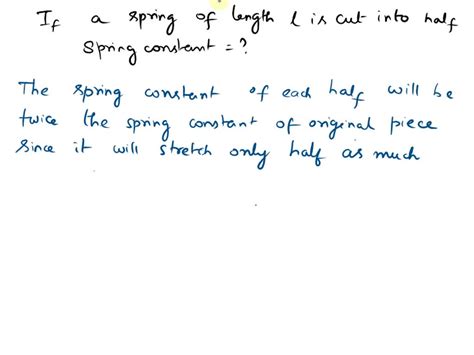 If a spring of length l is cut into half
Spring constant = ?
The spring constant of each half will be
twice the spring constant of original piece
since it will stretch only half as much